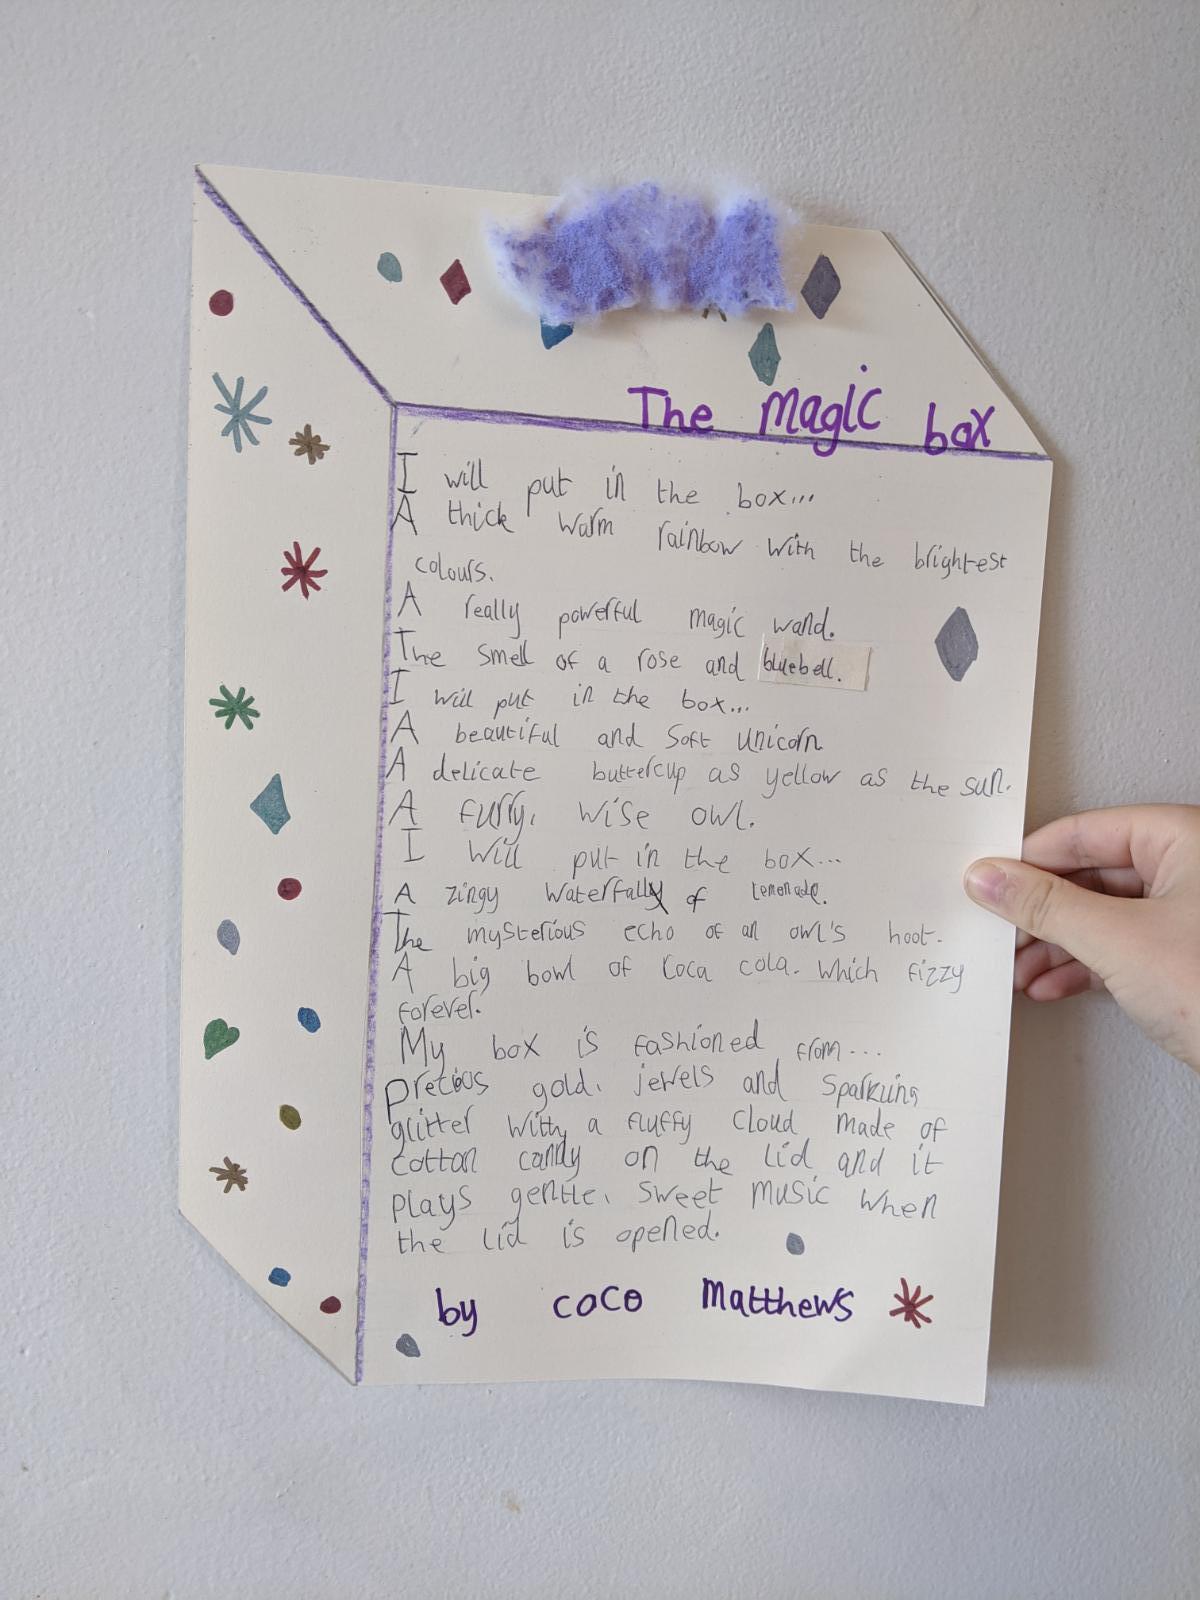 The magic box
I will put in the box...
A thick warm rainbow with the brightest
colours.
A really powerful magic wand.
The smell of a rose and bluebell.
I will put in the box...
A beautiful and soft unicorn.
A delicate buttercup as yellow as the sun.
A furry, wise owl.
I will put in the box...
A zingy waterfall of lemonade.
The mysterious echo of an owl's hoot.
A big bowl of Coca cola. which fizzy
forever.
My box is fashioned from...
Precious gold, jewels and sparkling
glitter with a fluffy cloud made of
cotton candy on the lid and it
plays gentle, sweet music when
the lid is opened.
by coco Matthews